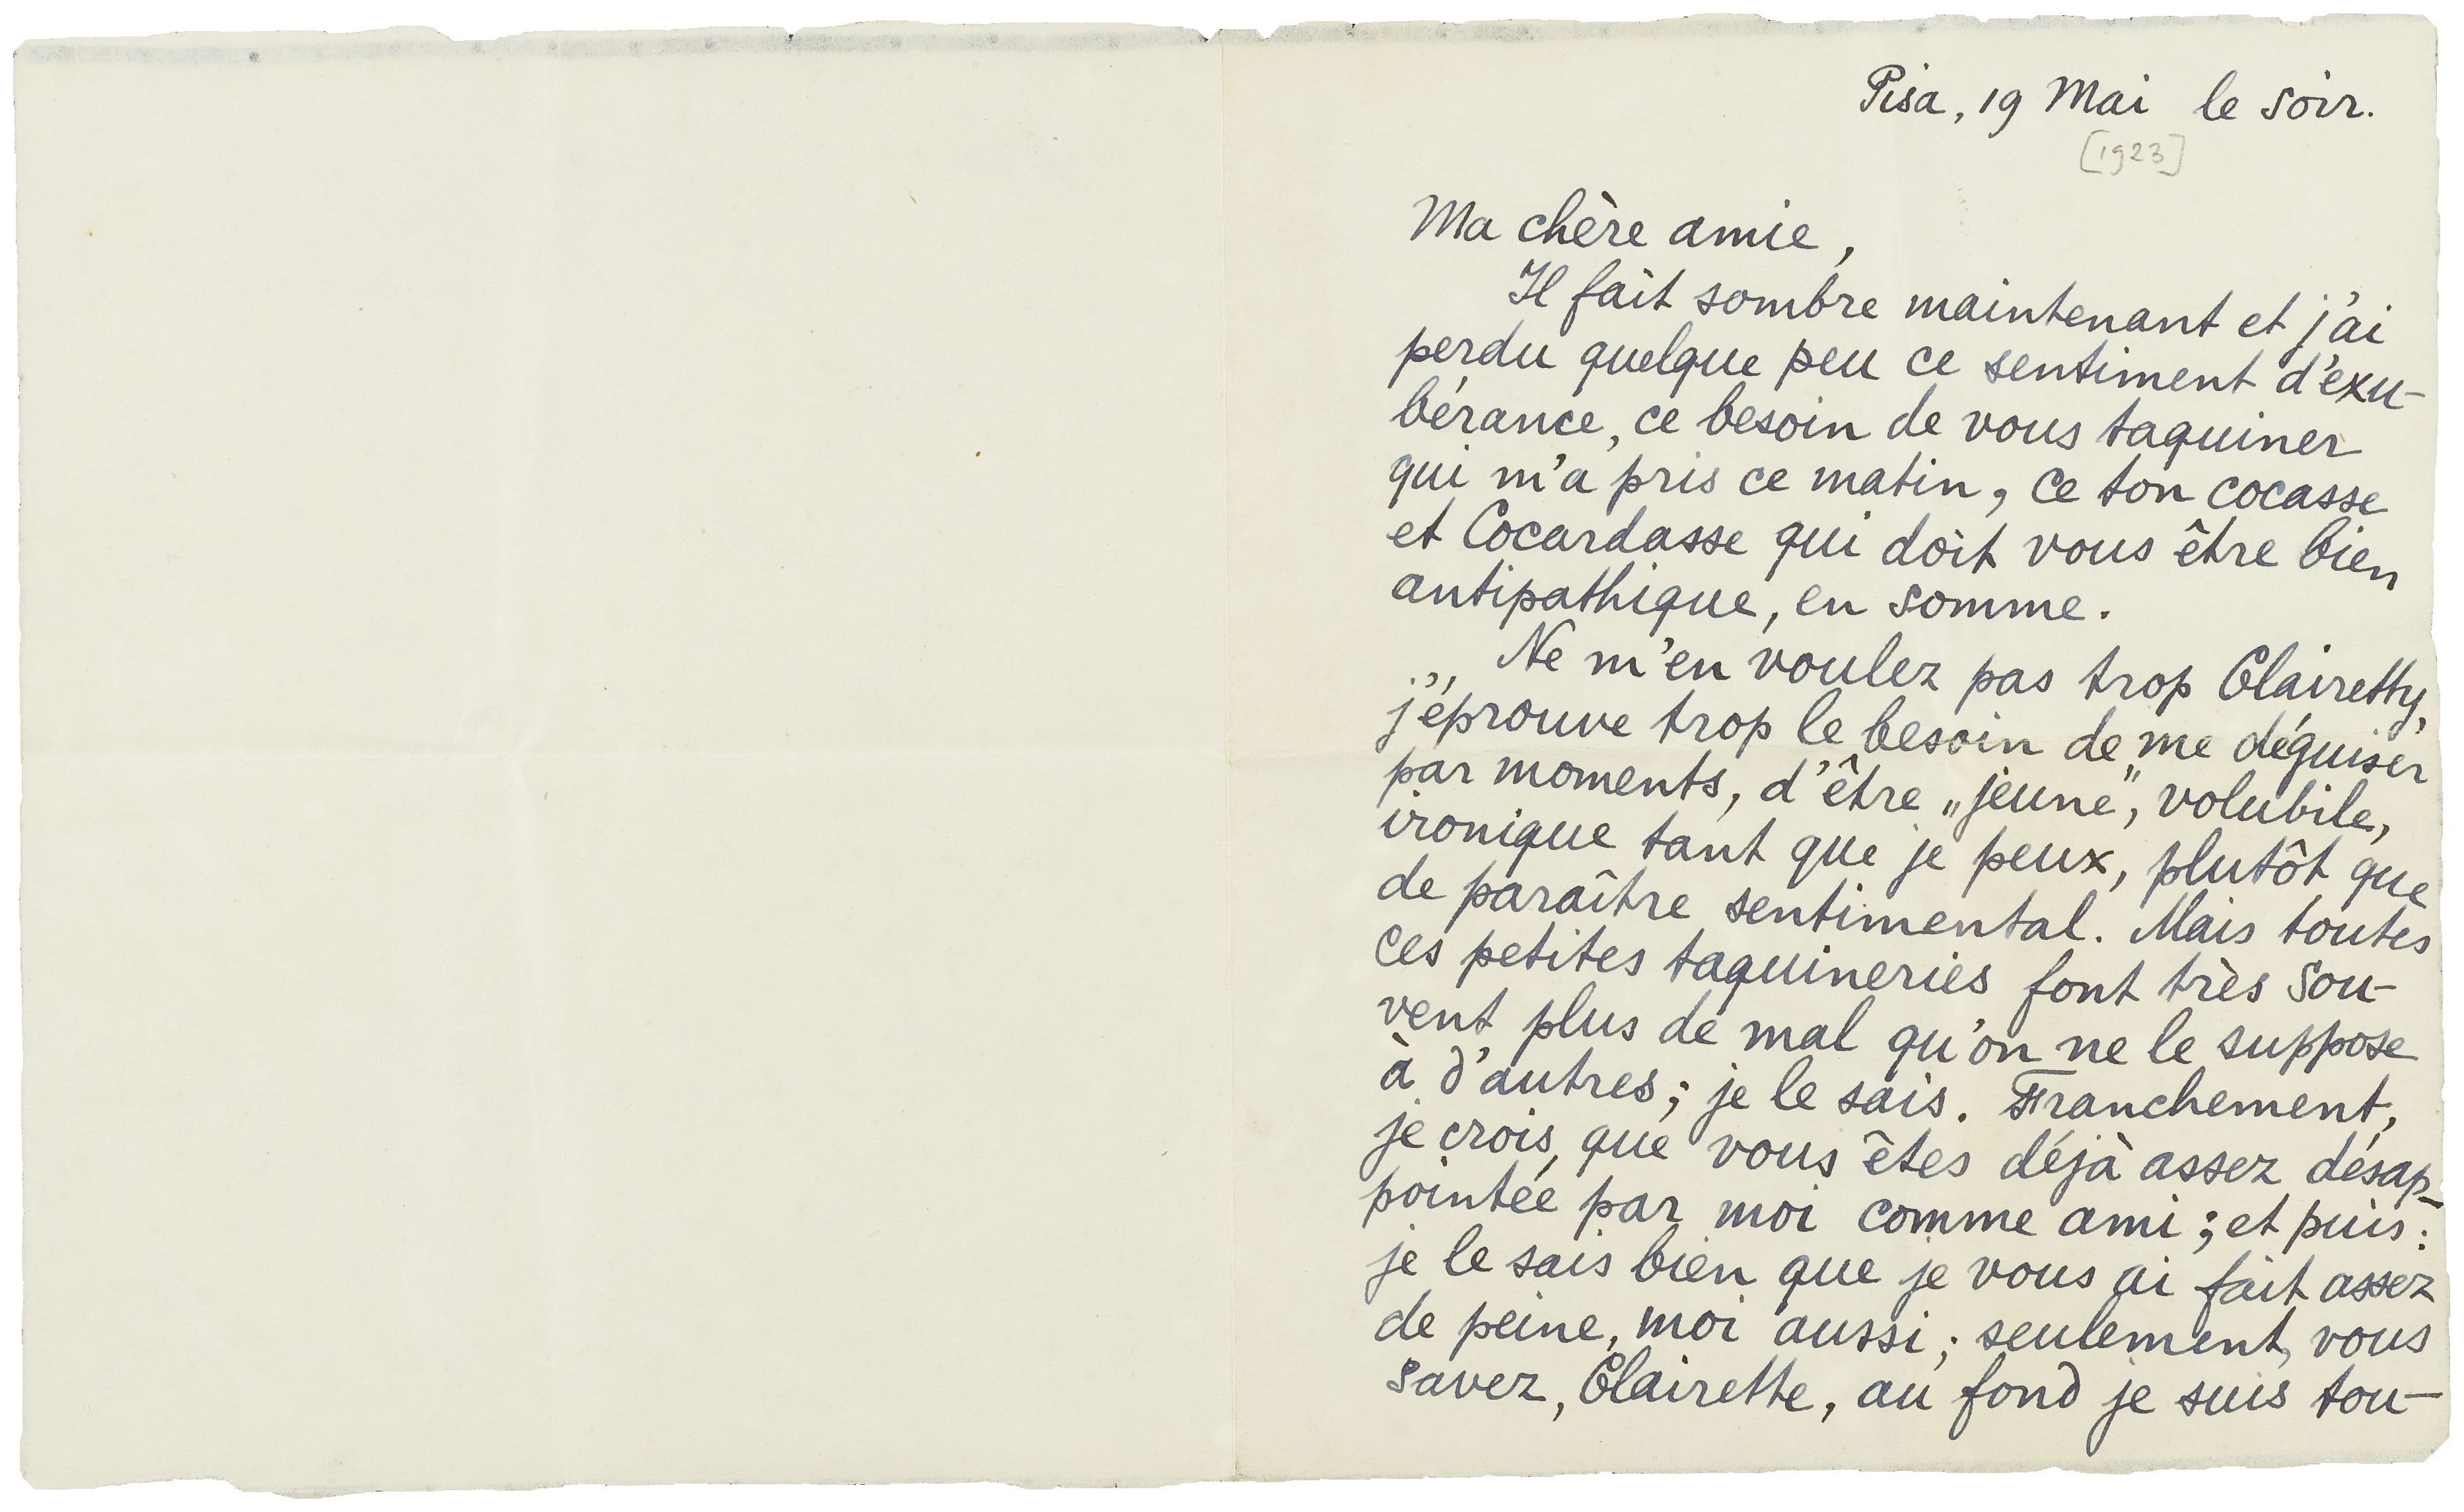 Pisa, 19 Mai le soir.
[1923]
Ma chère amie,
Il fait sombre maintenant et j'ai
perdu quelque peu ce sentiment d'exu-
bérance, ce besoin de vous taquiner
qui m'a pris ce matin, ce ton cocasse
et Cocardasse qui doit vous être bien
antipathique, en somme.
Ne m'en voulez pas trop Clairetty,
j'éprouve trop le besoin de me déguiser
par moments, d'être „jeune”, volubile,
ironique tant que je peux, plutôt que
de paraître sentimental. Mais toutes
ces petites taquineries font très sou-
vent plus de mal qu'on ne le suppose
à d'autres; je le sais. Franchement,
je crois, que vous êtes déjà assez désap-
pointée par moi comme ami; et puis:
je le sais bien que je vous ai fait assez
de peine, moi aussi; seulement, vous
savez, Clairette, au fond je suis tou-